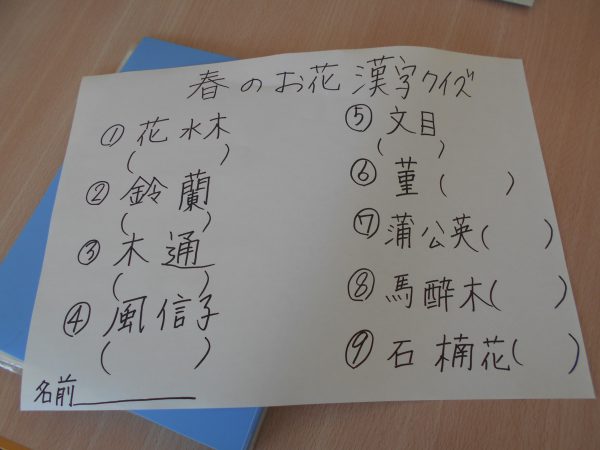 春のお花漢字クイズ
① 花水木
(　　　)
② 鈴蘭
(　　　)
③ 木通
(　　　)
④ 風信子
(　　　)
⑤ 文目
(　　　)
⑥ 菫(　　　)
⑦ 蒲公英(　　　)
⑧ 馬酔木(　　　)
⑨ 石楠花(　　　)
名前